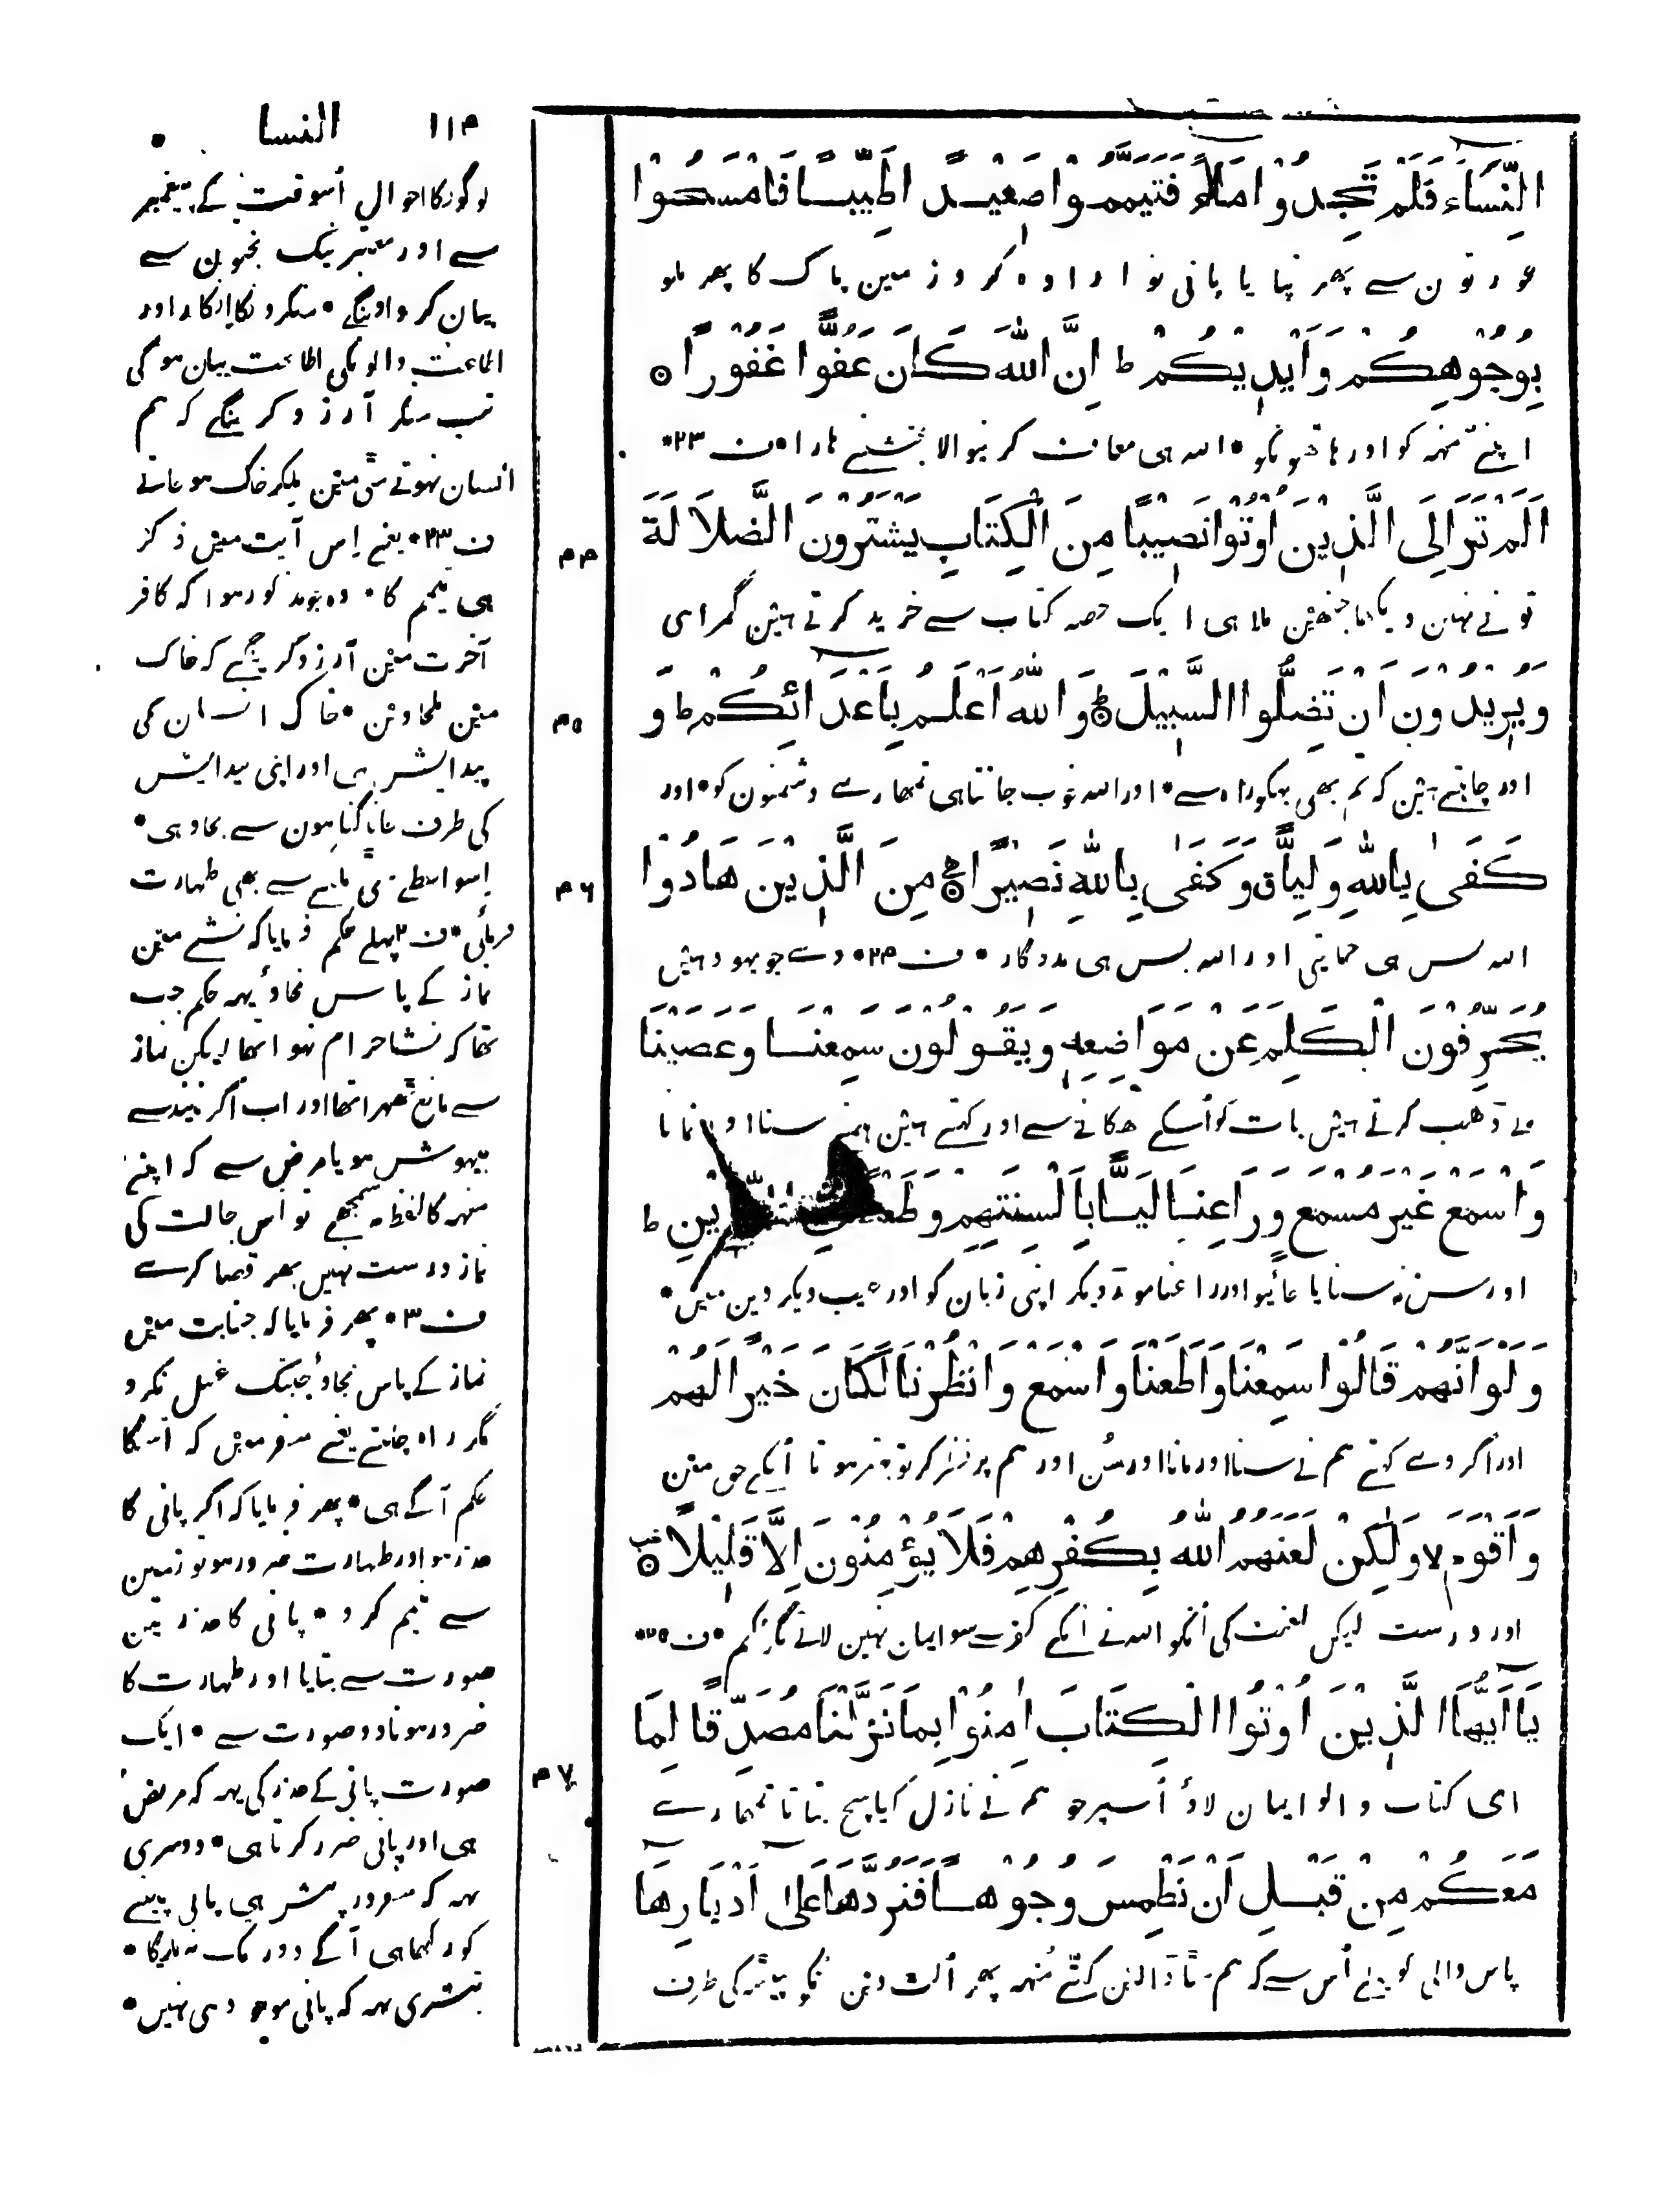 النِّسَاءَ فَلَمْ تَجِدُوْا مَاءً فَتَيَمَّمُوْا صَعِيْدًا طَيِّبًا فَامْسَحُوْا
عورتون سے پھر نپایا پانی تو ارادہ کرو زمین پاک کا پھر ملو
بِوُجُوْهِكُمْ وَاَيْدِيْكُمْ ط اِنَّ اللّٰهَ كَانَ عَفُوًّا غَفُوْرًا ○
اپنے منہہ کو اور ہاتھونکو • اللہ ہی معاف کرنیوالا بخشنے ہارا • ف ۲۳ •
اَلَمْ تَرَ اِلَى الَّذِيْنَ اُوْتُوْا نَصِيْبًا مِنَ الْكِتَابِ يَشْتَرُوْنَ الضَّلَالَةَ
تو نے نہین دیکھا جنھین ملا ہی ایک حصہ کتاب سے خرید کرتے ہین گمراہی
وَيُرِيْدُوْنَ اَنْ تَضِلُّوا السَّبِيْلَ ○ وَاللّٰهُ اَعْلَمُ بِاَعْدَائِكُمْ ط وَ
اور چاہتے ہین کہ تم بھی بہکو راہ سے • اور اللہ خوب جانتا ہی تمھارے دشمنون کو • اور
كَفٰى بِاللّٰهِ وَلِيًّا ق وَكَفٰى بِاللّٰهِ نَصِيْرًا ○ مِنَ الَّذِيْنَ هَادُوْا
اللہ بس ہی حمایتی اور اللہ بس ہی مددگار • ف ۲۴ • وے جو یہود ہین
يُحَرِّفُوْنَ الْكَلِمَ عَنْ مَوَاضِعِهٖ وَيَقُوْلُوْنَ سَمِعْنَا وَعَصَيْنَا
بے ڈھب کرتے ہین بات کو اُسکے ٹھکانے سے اور کہتے ہین ہمنے سنا اور نمانا
وَاسْمَعْ غَيْرَ مُسْمَعٍ وَّرَاعِنَا لَيًّا بِاَلْسِنَتِهِمْ وَطَعْنًا فِي الدِّيْنِ ط
اور سن نہ سنایا جائیو اور راعنا موڑ دیکر اپنی زبان کو اور عیب دیکر دین مین •
وَلَوْ اَنَّهُمْ قَالُوْا سَمِعْنَا وَاَطَعْنَا وَاسْمَعْ وَانْظُرْنَا لَكَانَ خَيْرًا لَهُمْ
اور اگر وے کہتے ہم نے سنا اور مانا اور سُن اور ہم پر نظر کر تو بہتر ہوتا اُنکے حق مین
وَاَقْوَمَ لا وَلٰكِنْ لَعَنَهُمُ اللّٰهُ بِكُفْرِهِمْ فَلَا يُؤْمِنُوْنَ اِلَّا قَلِيْلًا ○
اور درست لیکن لعنت کی اُنکو اللہ نے اُنکے کفر سے سو ایمان نہین لاتے مگر کم • ف ۲۵ •
يَااَيُّهَا الَّذِيْنَ اُوْتُوا الْكِتَابَ اٰمِنُوْا بِمَا نَزَّلْنَا مُصَدِّقًا لِمَا
ای کتاب والو ایمان لاؤ اُسپر جو ہم نے نازل کیا سچ بتاتا تمھارے
مَعَكُمْ مِنْ قَبْلِ اَنْ نَطْمِسَ وُجُوْهًا فَنَرُدَّهَا عَلٰى اَدْبَارِهَا
پاس والی کو پہلے اُس سے کہ ہم مٹا ڈالین کتّے مُنہہ پھر اُلٹ دین اُنکو پیٹھ کی طرف
۴۴
۴۵
۴۶
۴۷
۱۱۴ النسا
لوگونکا احوال اُسوقت کے پیغمبر
سے اور معتبر نیک بختون سے
بیان کرواوینگے • منکرونکا انکار اور
اطاعت والونکی اطاعت بیان ہوگی
تب منکر آرزو کرینگے کہ ہم
انسان نہوتے مٹی مین ملکر خاک ہوجاتے
ف ۲۳ • یعنے اِس آیت مین ذکر
ہی تیمم کا • وہ جو مذکور ہوا کہ کافر
آخرت مین آرزو کرینگے کہ خاک
مین ملجاوین • خاک انسان کی
پیدایش ہی اور اپنی پیدایش
کی طرف جانا گناہون سے بچاو ہی •
اِسواسطے مٹی ملنے سے بھی طہارت
فرمائی • ف ۲ پہلے حکم فرمایا کہ نشے مین
نماز کے پاس نجاؤ یہہ حکم جب
تھا کہ نشا حرام نہوا تھا لیکن نماز
سے مانع ٹھہرا تھا اور اب اگر نیند سے
بیہوش ہو یا مرض سے کہ اپنے
منہہ کا لفظ نہ سمجھے تو اُس حالت کی
نماز درست نہین پھر قضا کرے
ف ۳ • پھر فرمایا کہ جنابت مین
نماز کے پاس نجاؤ جبتک غسل نکرو
مگر راہ چلتے یعنے سفر مین کہ اُسکا
حکم آگے ہی • پھر فرمایا کہ اگر پانی کا
عذر ہو اور طہارت ضرور ہو تو زمین
سے تیمم کرو • پانی کا عذر تین
صورت سے بتایا اور طہارت کا
ضرور ہونا دو صورت سے • ایک
صورت پانی کے عذر کی یہہ کہ مریض
ہی اور پانی ضرر کرتا ہی • دوسری
یہہ کہ سفر درپیش ہی پانی پینے
کو رکھا ہی آگے دور تک نہ ملیگا •
تیسری یہہ کہ پانی موجود ہی نہین •